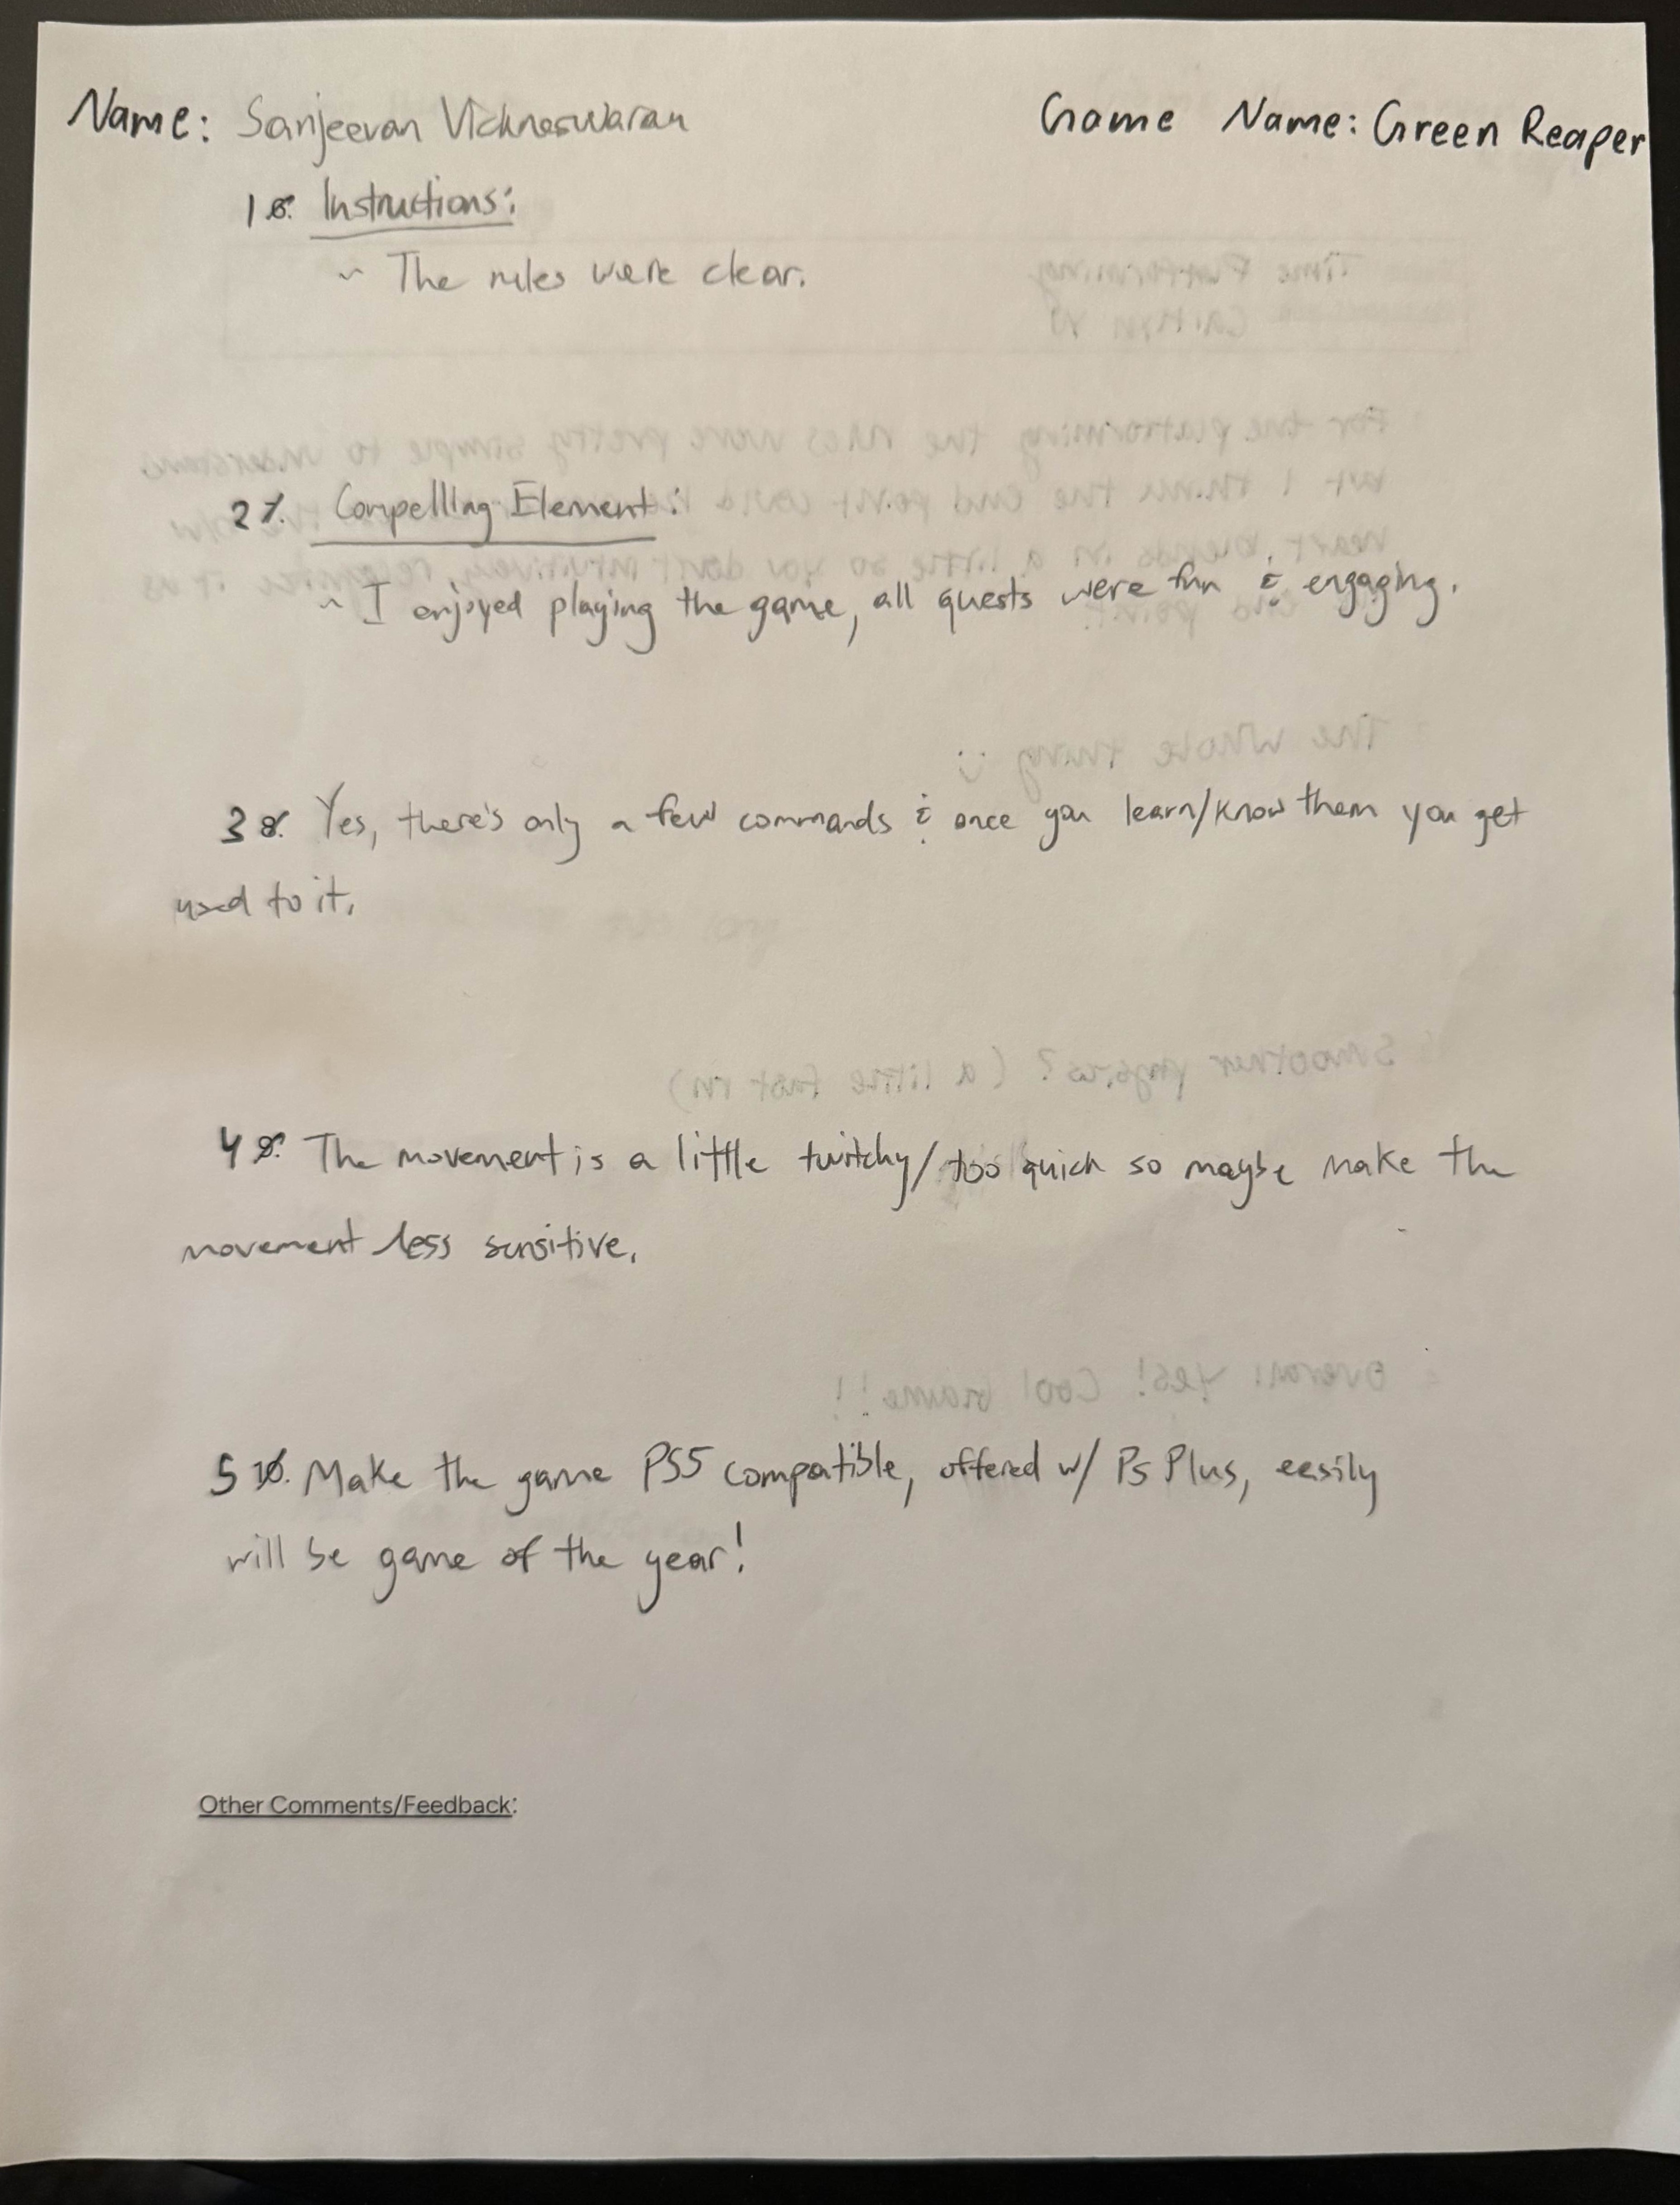 Name: Sanjeevan Vickneswaran Game Name: Green Reaper
1 6. Instructions:
~ The rules were clear.
2 7. Compelling Element:
~ I enjoyed playing the game, all quests were fun & engaging.
3 8. Yes, there's only a few commands & once you learn/know them you get
used to it.
4 9. The movement is a little twitchy/too quick so maybe make the
movement less sensitive.
5 10. Make the game PS5 compatible, offered w/ Ps Plus, easily
will be game of the year!
Other Comments/Feedback: